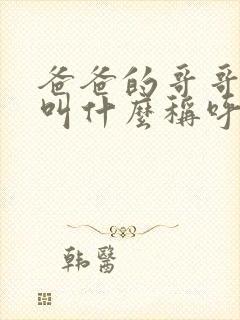 爸爸的哥哥
叫什麼稱呼
韩醫